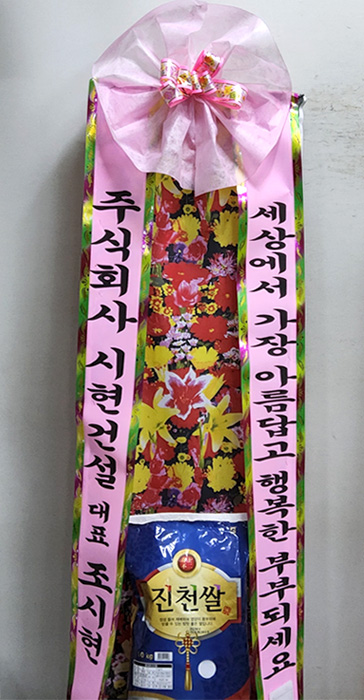 주식회사 시현건설 대표 조시현
세상에서 가장 아름답고 행복한 부부되세요
진천쌀